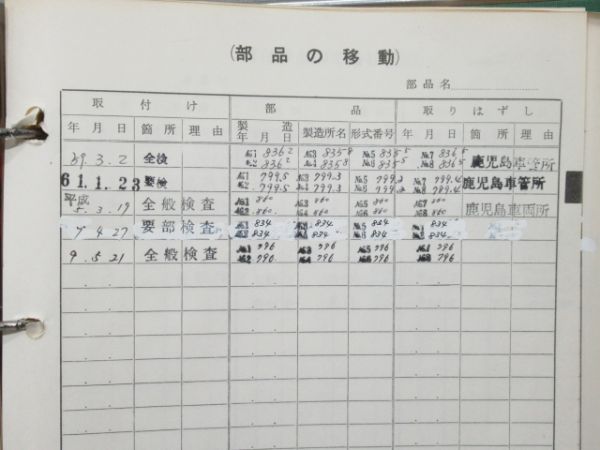 (部品の移動)
部品名
取付け 部品 取りはずし
年月日 箇所 理由 製造年月日 製造所名 形式番号 年月日 箇所 理由
59.3.2 全検 №1 836² №2 836² №3 835⁸ №4 835⁸ №5 835⁵ №6 835⁵ №7 836⁵ №8 836⁵ 鹿児島車管所
61.1.23 要検 №1 799.5 №2 799.5 №3 799.3 №4 799.3 №5 799.2 №7 799.4 鹿児島車管所
平成
5.3.19 全般検査 №1 860 №2 860 №3 860 №4 860 №5 860 №6 860 №7 860 №8 860 鹿児島車両所
7.4.27 要部検査 834 834 834 834 834 834 834 834
9.5.21 全般検査 №1 796 №2 796 №3 796 №4 796 №5 796 №6 796 796 796